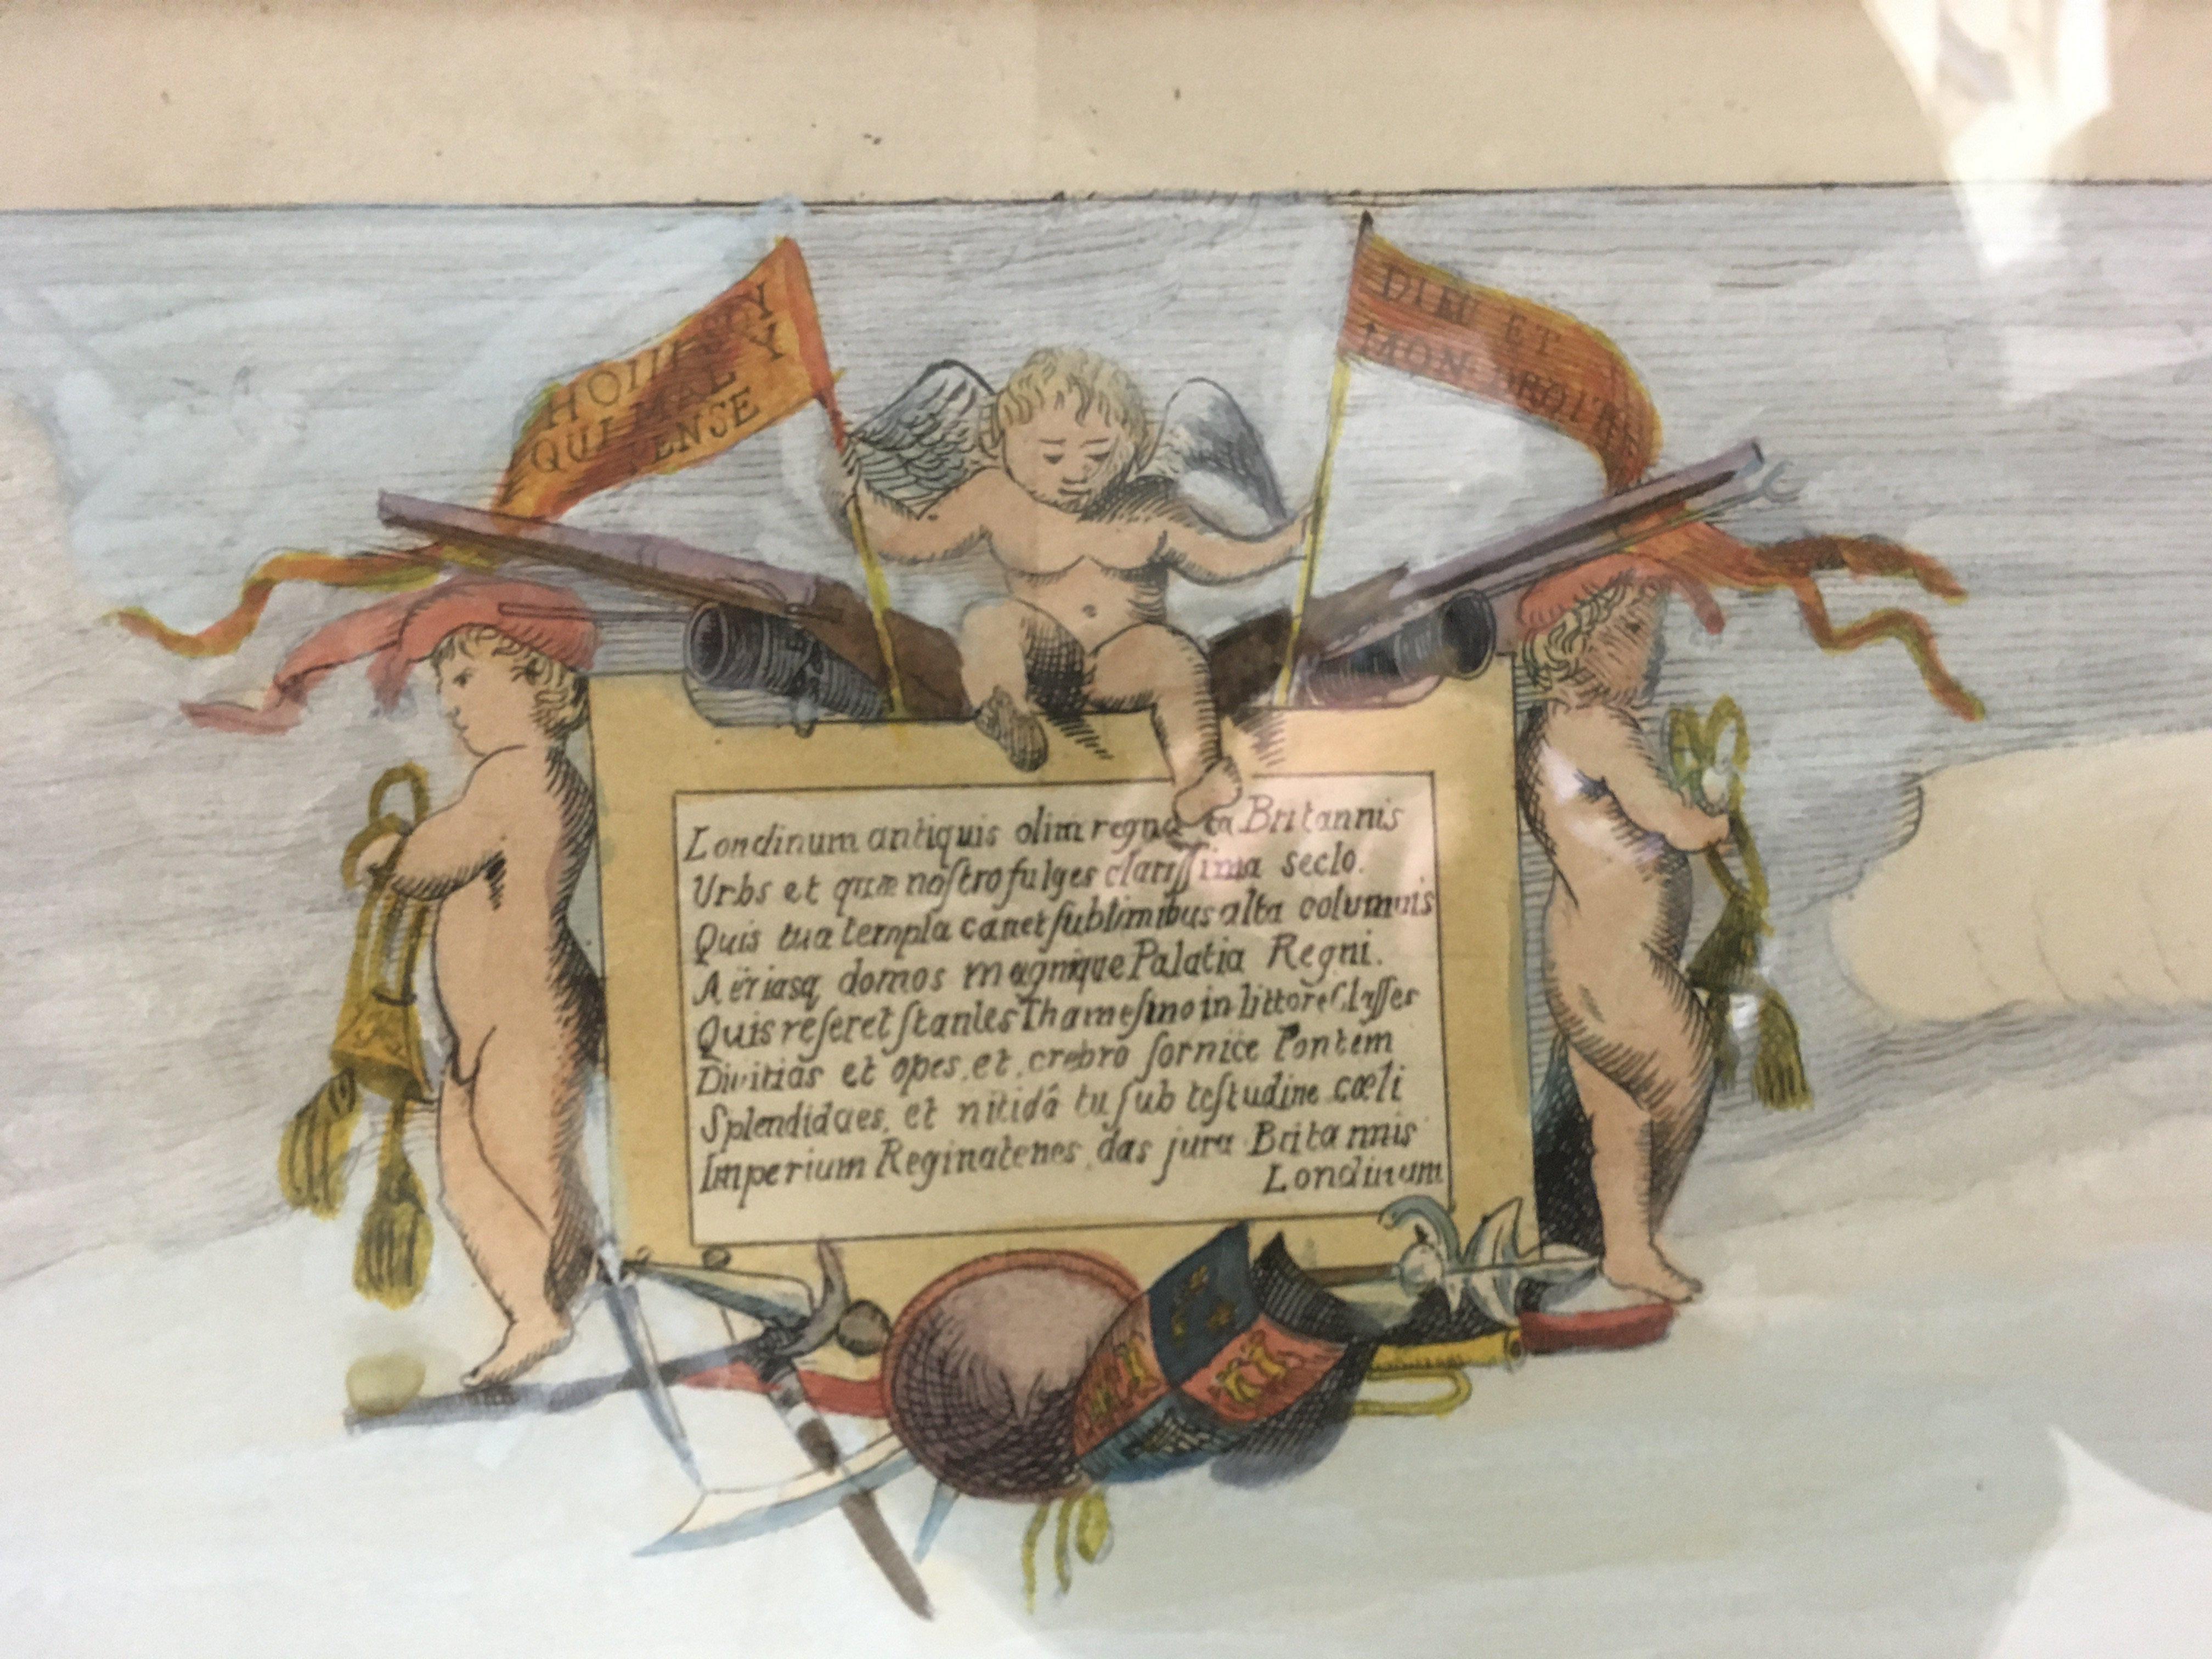 HONI SOY
QUI MAL Y
PENSE
DIEU ET
MON DROIT
Londinum antiquis olim regnata Britannis
Urbs et quæ noſtro fulges clariſſima seclo.
Quis tua templa canet ſublimibus alta columnis
Aëriasq domos magnique Palatia Regni.
Quis referet ſtantes Thameſino in littore Claſſes
Divitias et opes, et crebro fornice Pontem
Splendidaes, et nitidâ tu ſub teſtudine cœli
Imperium Regina tenes, das jura Britannis
Londinum